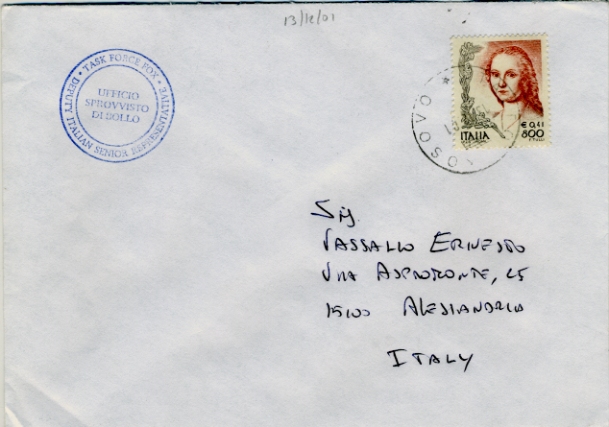 13/12/01
• TASK FORCE FOX •
DEPUTY ITALIAN SENIOR REPRESENTATIVE
UFFICIO
SPROVVISTO
DI BOLLO
€ 0,41
ITALIA 800
KOSOVO * 13
Sig.
VASSALLO ERNESTO
VIA ASPROMONTE, 25
15100 ALESSANDRIA
ITALY